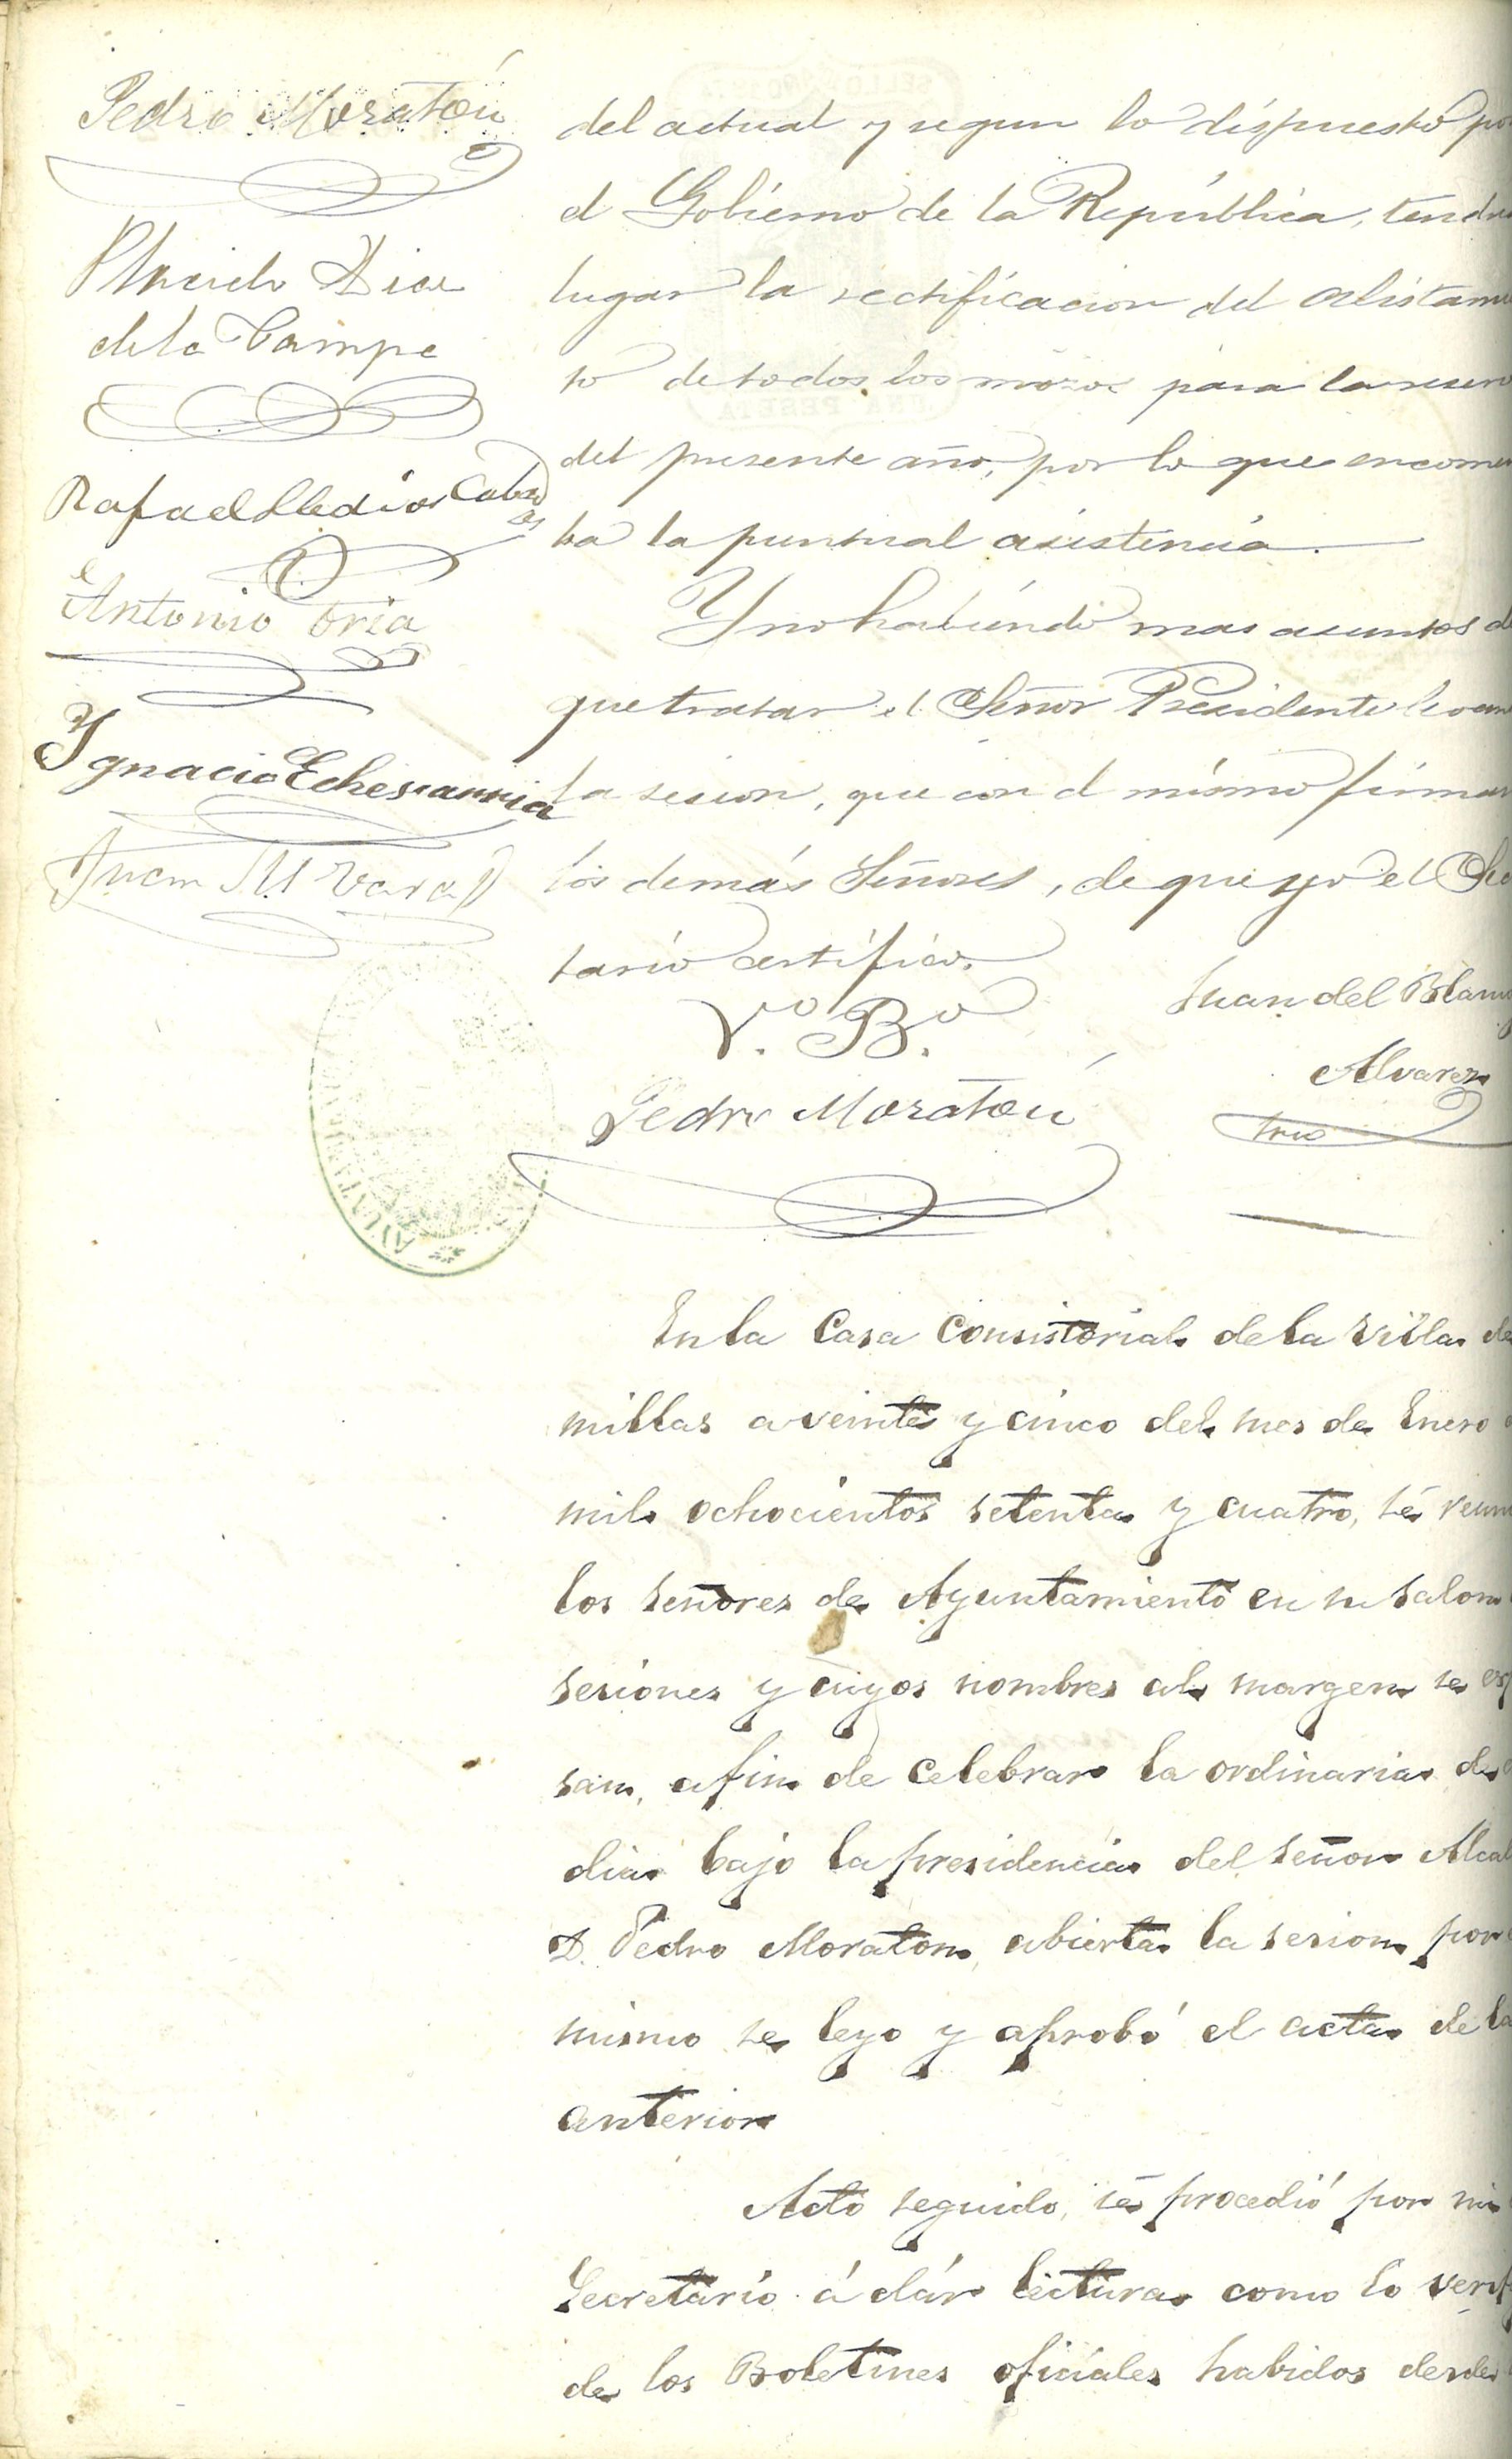 Pedro Moraton
Placido Diez
de la Campa
Rafael Lledias Cabra
Antonio Oria
Ygnacio Echevarria
Juan M Varal
del actual y segun lo dispuesto por
el Gobierno de la República, tendra
lugar la rectificacion del alistami
to de todos los mozos para la reserv
del presente año, por lo que encomen
ba la puntual asistencia.
Y no habiendo mas asuntos de
que tratar el Señor Presidente levan
la sesion, que con el mismo firman
los demás Señores, de que yo el Sec
tario certifico.
V.º B.º
Pedro Moraton
Juan del Blanc
Alvarez
Srio
AYUNTAM
En la Casa Consistorial de la Villa de
millas a veinte y cinco del mes de Enero
mil ochocientos setenta y cuatro, sé reuni
los señores de Ayuntamiento en su salon
sesiones y cuyos nombres al margen se esp
san, a fin de celebrar la ordinaria de
dia bajo la presidencia del señor Alcal
D. Pedro Moraton, abierta la sesion por
mismo se leyo y aprobó el acta de la
anterior
Acto seguido, sé procedió por mi
Secretario á dár lectura como lo verif
de los Boletines oficiales habidos desde